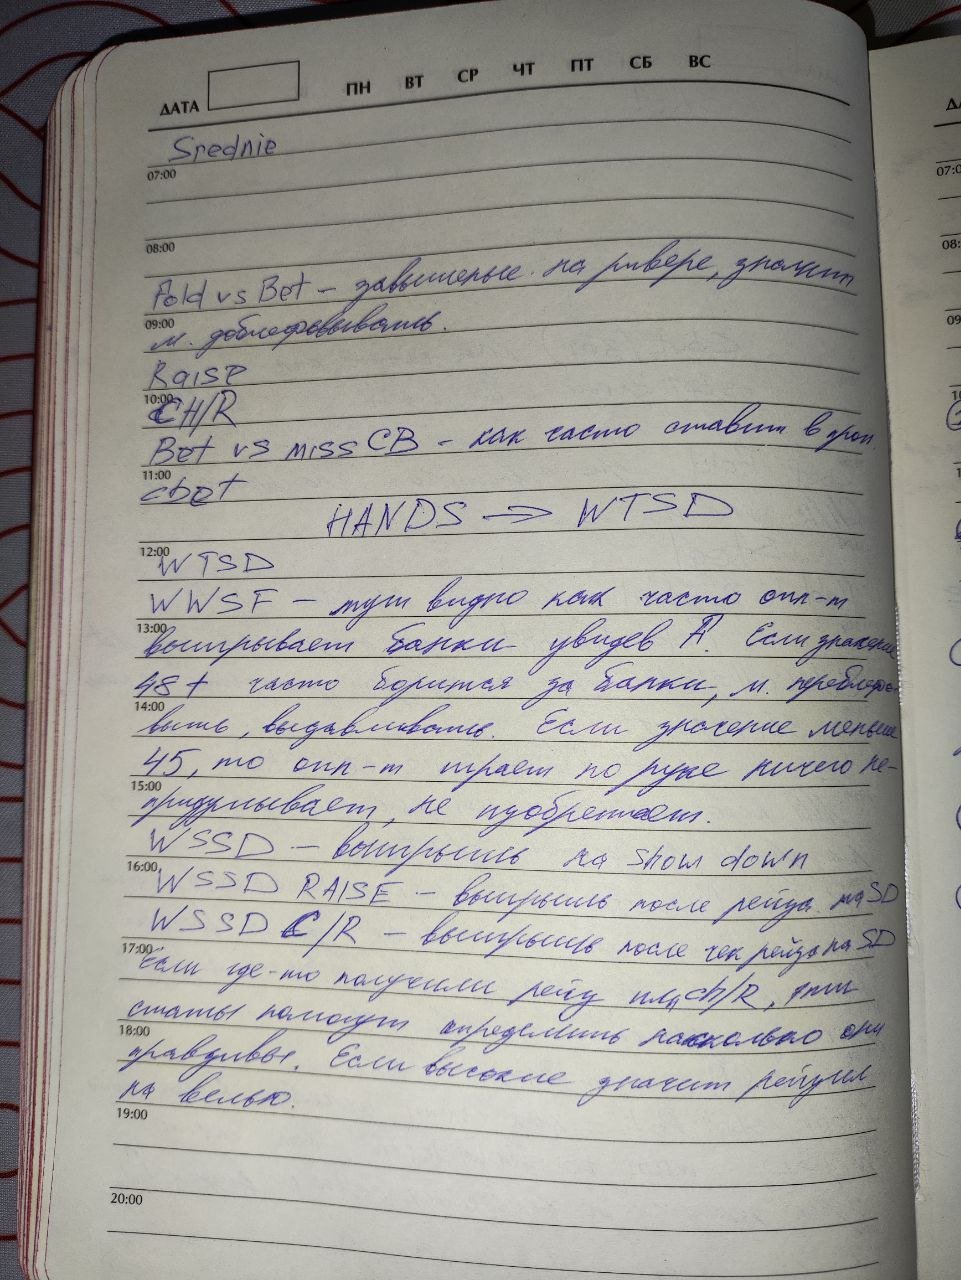 ДАТА ПН ВТ СР ЧТ ПТ СБ ВС
Srednie
07:00
08:00
Fold vs Bet – завышеные на ривере, значит
09:00
м. доблефовывать.
Raise
10:00
CH/R
Bet vs miss CB – как часто ставит в дроп
11:00
cbet
HANDS → WTSD
12:00
WTSD
WWSF – тут видно как часто опп-т
13:00
выигрывает банки увидев Если значение
48+ часто борится за банки, м. переблефо-
14:00
выть, выдавливать. Если значение меньше
45, то опп-т играет по руке ничего не-
15:00
придумывает, не изобретает.
WSSD – выигрышь на Show down
16:00
WSSD RAISE – выигрышь после рейза на SD
WSSD C/R – выигрышь после чек рейза на SD
17:00
Если где-то получили рейз или ch/R, эти
статы помогут определить насколько они
18:00
правдивы. Если высокие значит рейзил
на велью.
19:00
20:00
07:0
08:
09
10
1